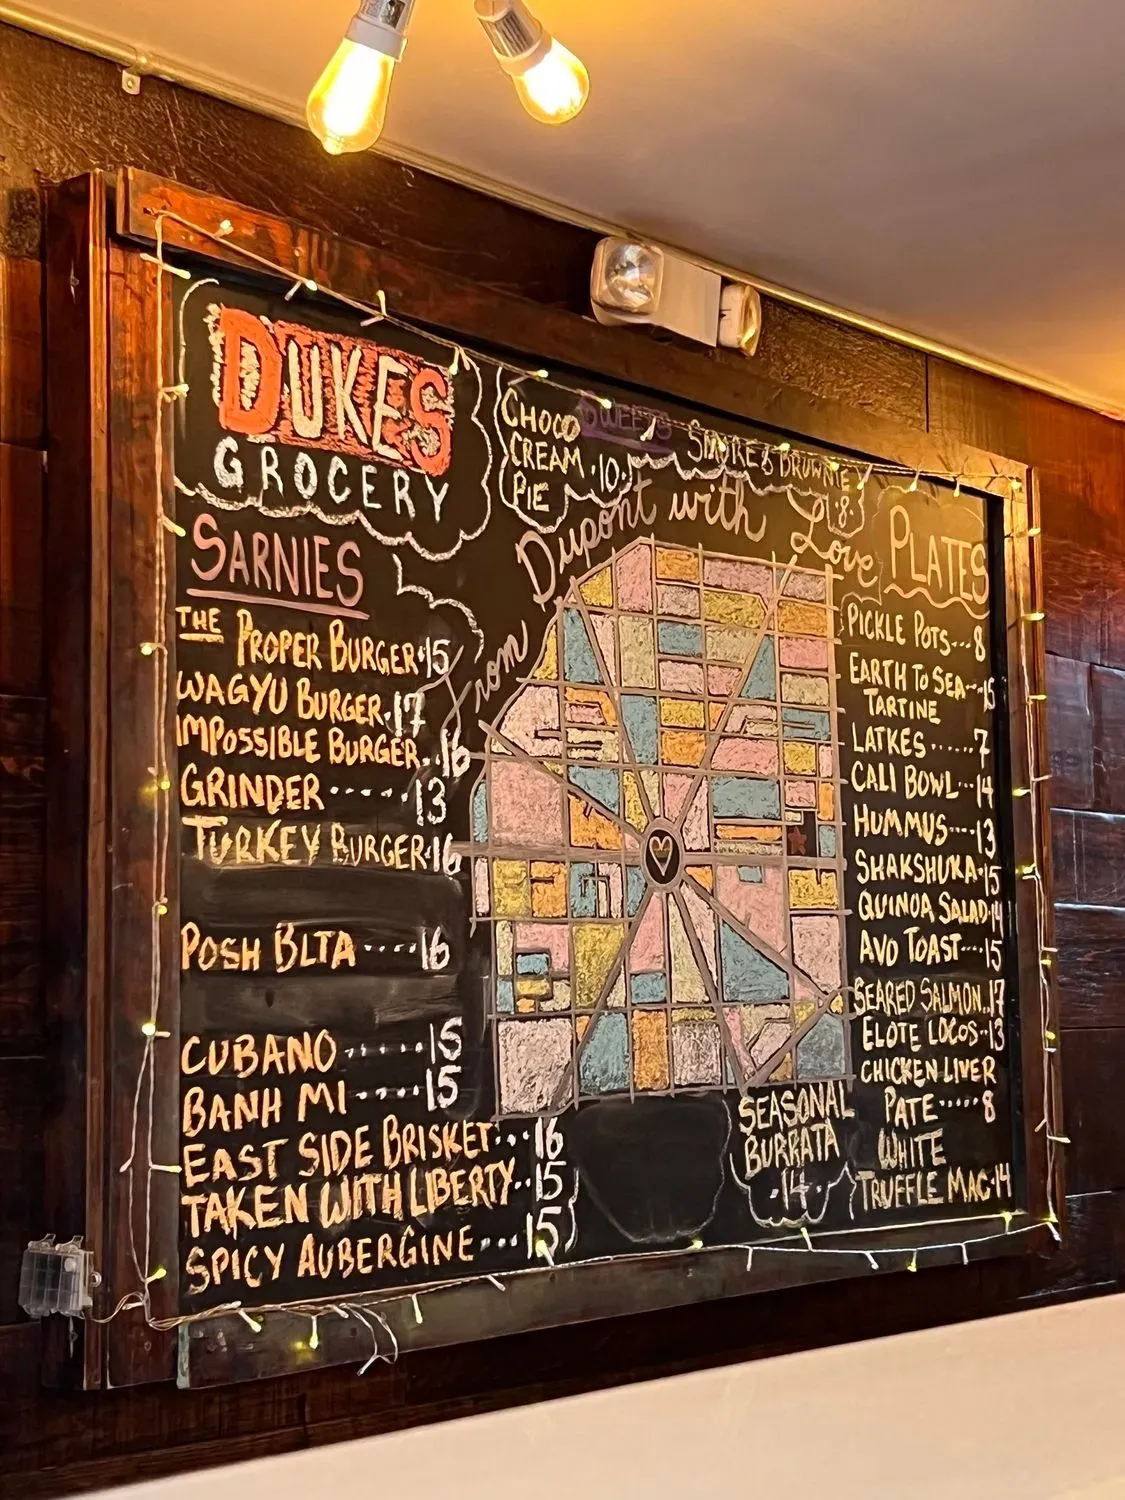 DUKES
GROCERY
SWEETS
CHOCO
CREAM ·10·
PIE
SMORES BROWNIE
·8·
From Dupont with Love
SARNIES
THE PROPER BURGER·15
WAGYU BURGER·17
IMPOSSIBLE BURGER..16
GRINDER ·····13
TURKEY BURGER·16
POSH BLTA ····16
CUBANO ·····15
BANH MI ····15
EAST SIDE BRISKET···16
TAKEN WITH LIBERTY··15
SPICY AUBERGINE···15
PLATES
PICKLE POTS---8
EARTH TO SEA--15
TARTINE
LATKES ······7
CALI BOWL--14
HUMMUS----13
SHAKSHUKA·15
QUINOA SALAD·14
AVO TOAST----15
SEARED SALMON..17
ELOTE LOCOS--13
CHICKEN LIVER
PATE·····8
WHITE
TRUFFLE MAC·14
SEASONAL
BURRATA
·14·